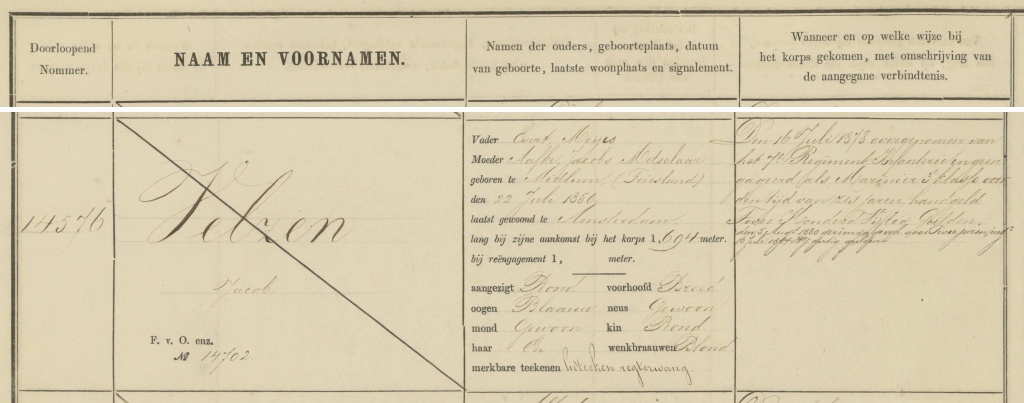 Doorloopend
Nommer.
NAAM EN VOORNAMEN.
Namen der ouders, geboorteplaats, datum
van geboorte, laatste woonplaats en signalement.
Wanneer en op welke wijze bij
het korps gekomen, met omschrijving van
de aangegane verbindtenis.
14576
Velzen
Jacob
F. v. O. enz.
№ 14702
Vader Evert Meijes
Moeder Aafke Jacobs Metselaar
geboren te Midlum (Friesland)
den 22 Juli 1856
laatst gewoond te Amsterdam
lang bij zijne aankomst bij het korps 1,694 meter.
bij reëngagement 1, meter.
aangezigt Rond voorhoofd Breed
oogen Blaauw neus Gewoon
mond Gewoon kin Rond
haar En wenkbraauwen Blond
merkbare teekenen lidteeken regterwang.
Den 16 Juli 1878 overgenomen van
het 7e Regiment Infanterie en geën
gageerd als Marinier 3e klasse voor
den tijd van zes jaren handgeld
Twee Honderd Vijftig Gulden